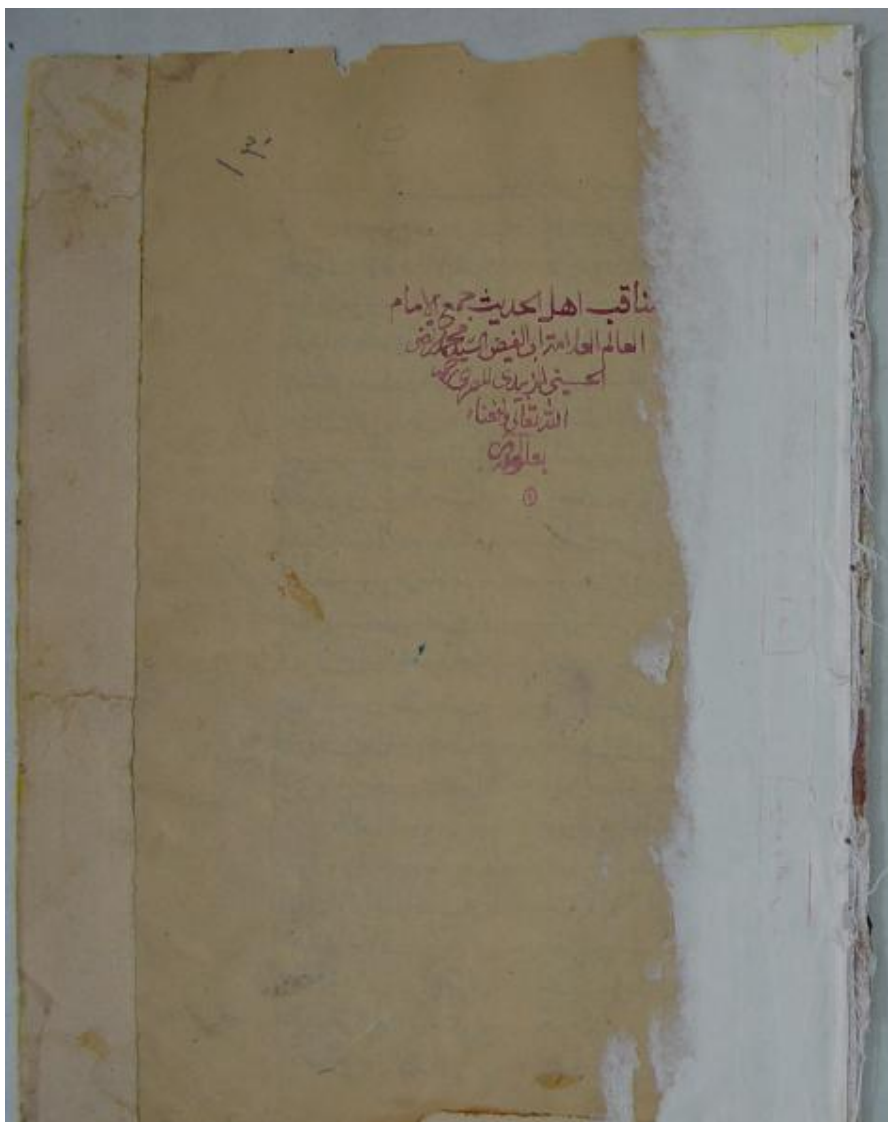 مناقب اهل الحديث جمع الامام
العالم العلامة ابى الفيض السيد محمد مرتضى
الحسينى الزبيدى المصرى رحمه
الله تعالى ونفعنا
بعلومه